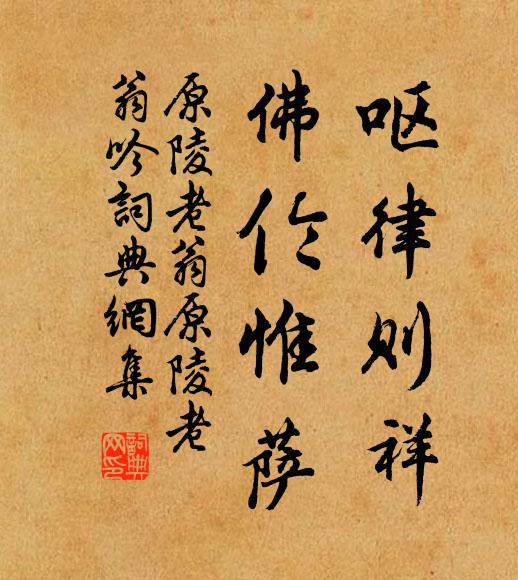 呕律则祥
佛伦惟萨
原陵老翁原陵老
翁吟詞典網集
詞典
网印